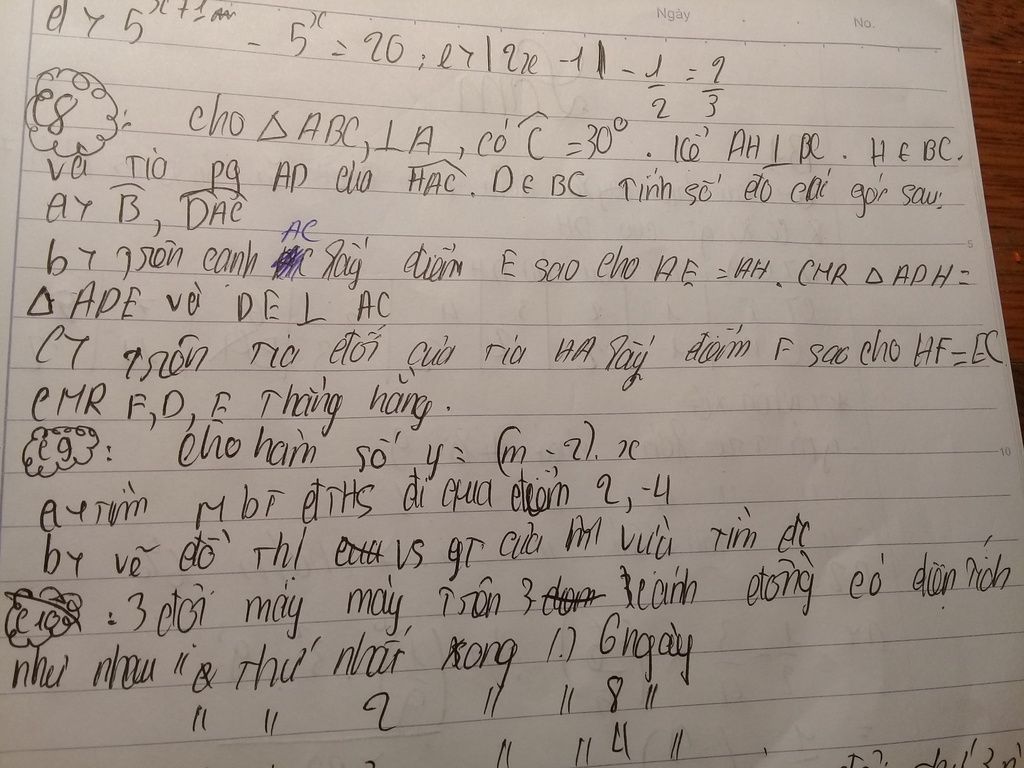 Ngày No.
d, 5^x+1 - 5^x = 20 ; e, |2x - 1| - 1/2 = 2/3
C8: Cho △ABC, ⊥A, có Ĉ = 30°. Kẻ AH ⊥ BC. H ∈ BC.
Và Tia pg AD của HAC. D ∈ BC Tính số đo các góc sau:
a, B̂, DAC
AC
b, Trên cạnh lấy điểm E sao cho AE = AH. CMR △ADH =
△ADE và DE ⊥ AC
5
c, Trên Tia đối của Tia HA lấy điểm F sao cho HF = EC
CMR F, D, E Thẳng hàng.
C9: Cho hàm số y = (m - 2). x
10
a, Tìm M bt ĐTHS đi qua điểm 2, -4
b, Vẽ đồ Thị vs gT của M vừa Tìm đc
C10: 3 đội máy máy Trên 3 cánh đồng có diện Tích
như nhau " Thứ nhất xong 6 ngày
" " 2 " " 8 "
" " 4 "